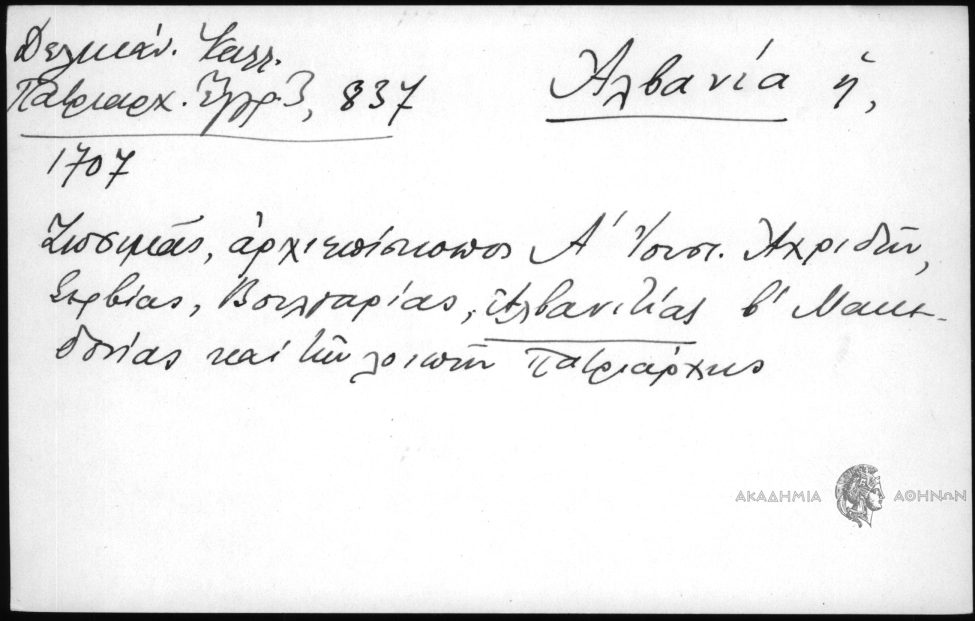 Δελικάν. Καλλ.
Πατριαρχ. Ἔγγρ. 3, 837
Ἀλβανία ἡ,
1707
Ζωσιμᾶς, ἀρχιεπίσκοπος Α' Ἰουστ. Ἀχριδῶν,
Σερβίας, Βουλγαρίας, Ἀλβανιτίας β' Μακε-
δονίας καὶ τῶν λοιπῶν πατριάρχης
ΑΚΑΔΗΜΙΑ ΑΘΗΝΩΝ